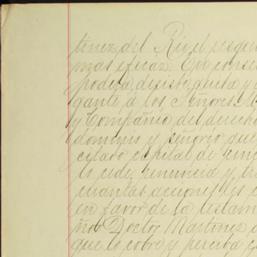 tinez del Rio el seque
mas eficaz. En conse
podera desiste quita y
gante á los Señores M
y Compañia del derecho
dominio y señorio que
citado capital de cinc
lo cede, renuncia y tra
cuantas acciones les
en favor de la testam
ñor Doctor Martinez d
que lo cobre y perciba